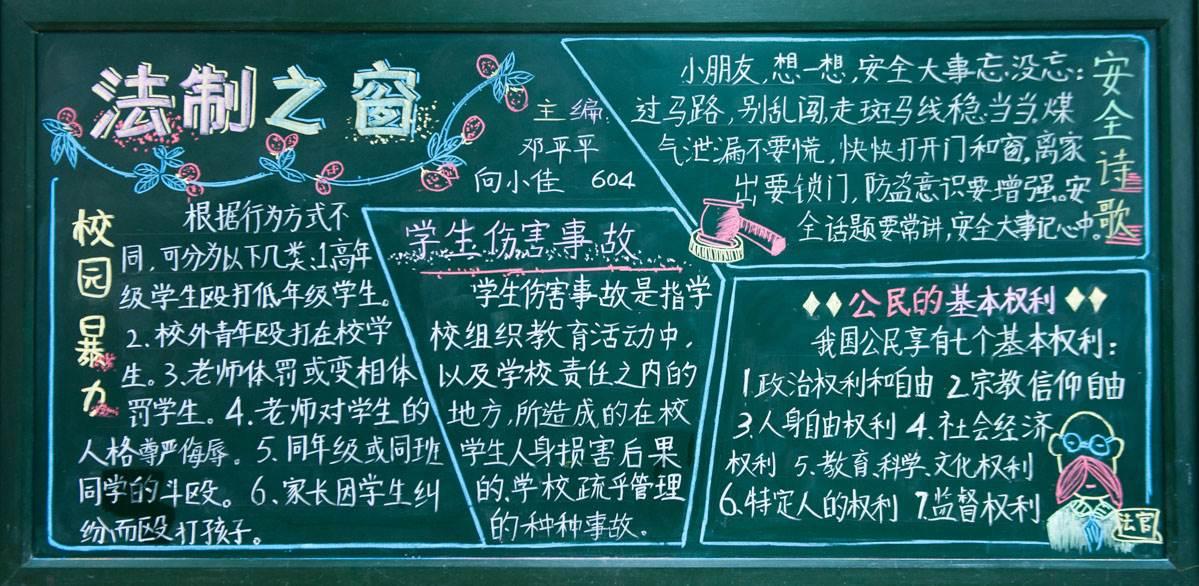 法制之窗
主编:
邓平平
向小佳 604
校园暴力
根据行为方式不
同,可分为以下几类:1.高年
级学生殴打低年级学生。
2.校外青年殴打在校学
生。3.老师体罚或变相体
罚学生。4.老师对学生的
人格尊严侮辱。5.同年级或同班
同学的斗殴。6.家长因学生纠
纷而殴打孩子。
学生伤害事故
学生伤害事故是指学
校组织教育活动中,
以及学校责任之内的
地方,所造成的在校
学生人身损害后果
的,学校疏乎管理
的种种事故。
安全诗歌
小朋友,想一想,安全大事忘没忘:
过马路,别乱闯,走斑马线稳当当,煤
气泄漏不要慌,快快打开门和窗,离家
出要锁门,防盗意识要增强。安
全话题要常讲,安全大事记心中。
公民的基本权利
我国公民享有七个基本权利:
1.政治权利和自由 2.宗教信仰自由
3.人身自由权利 4.社会经济
权利 5.教育、科学、文化权利
6.特定人的权利 7.监督权利
法官